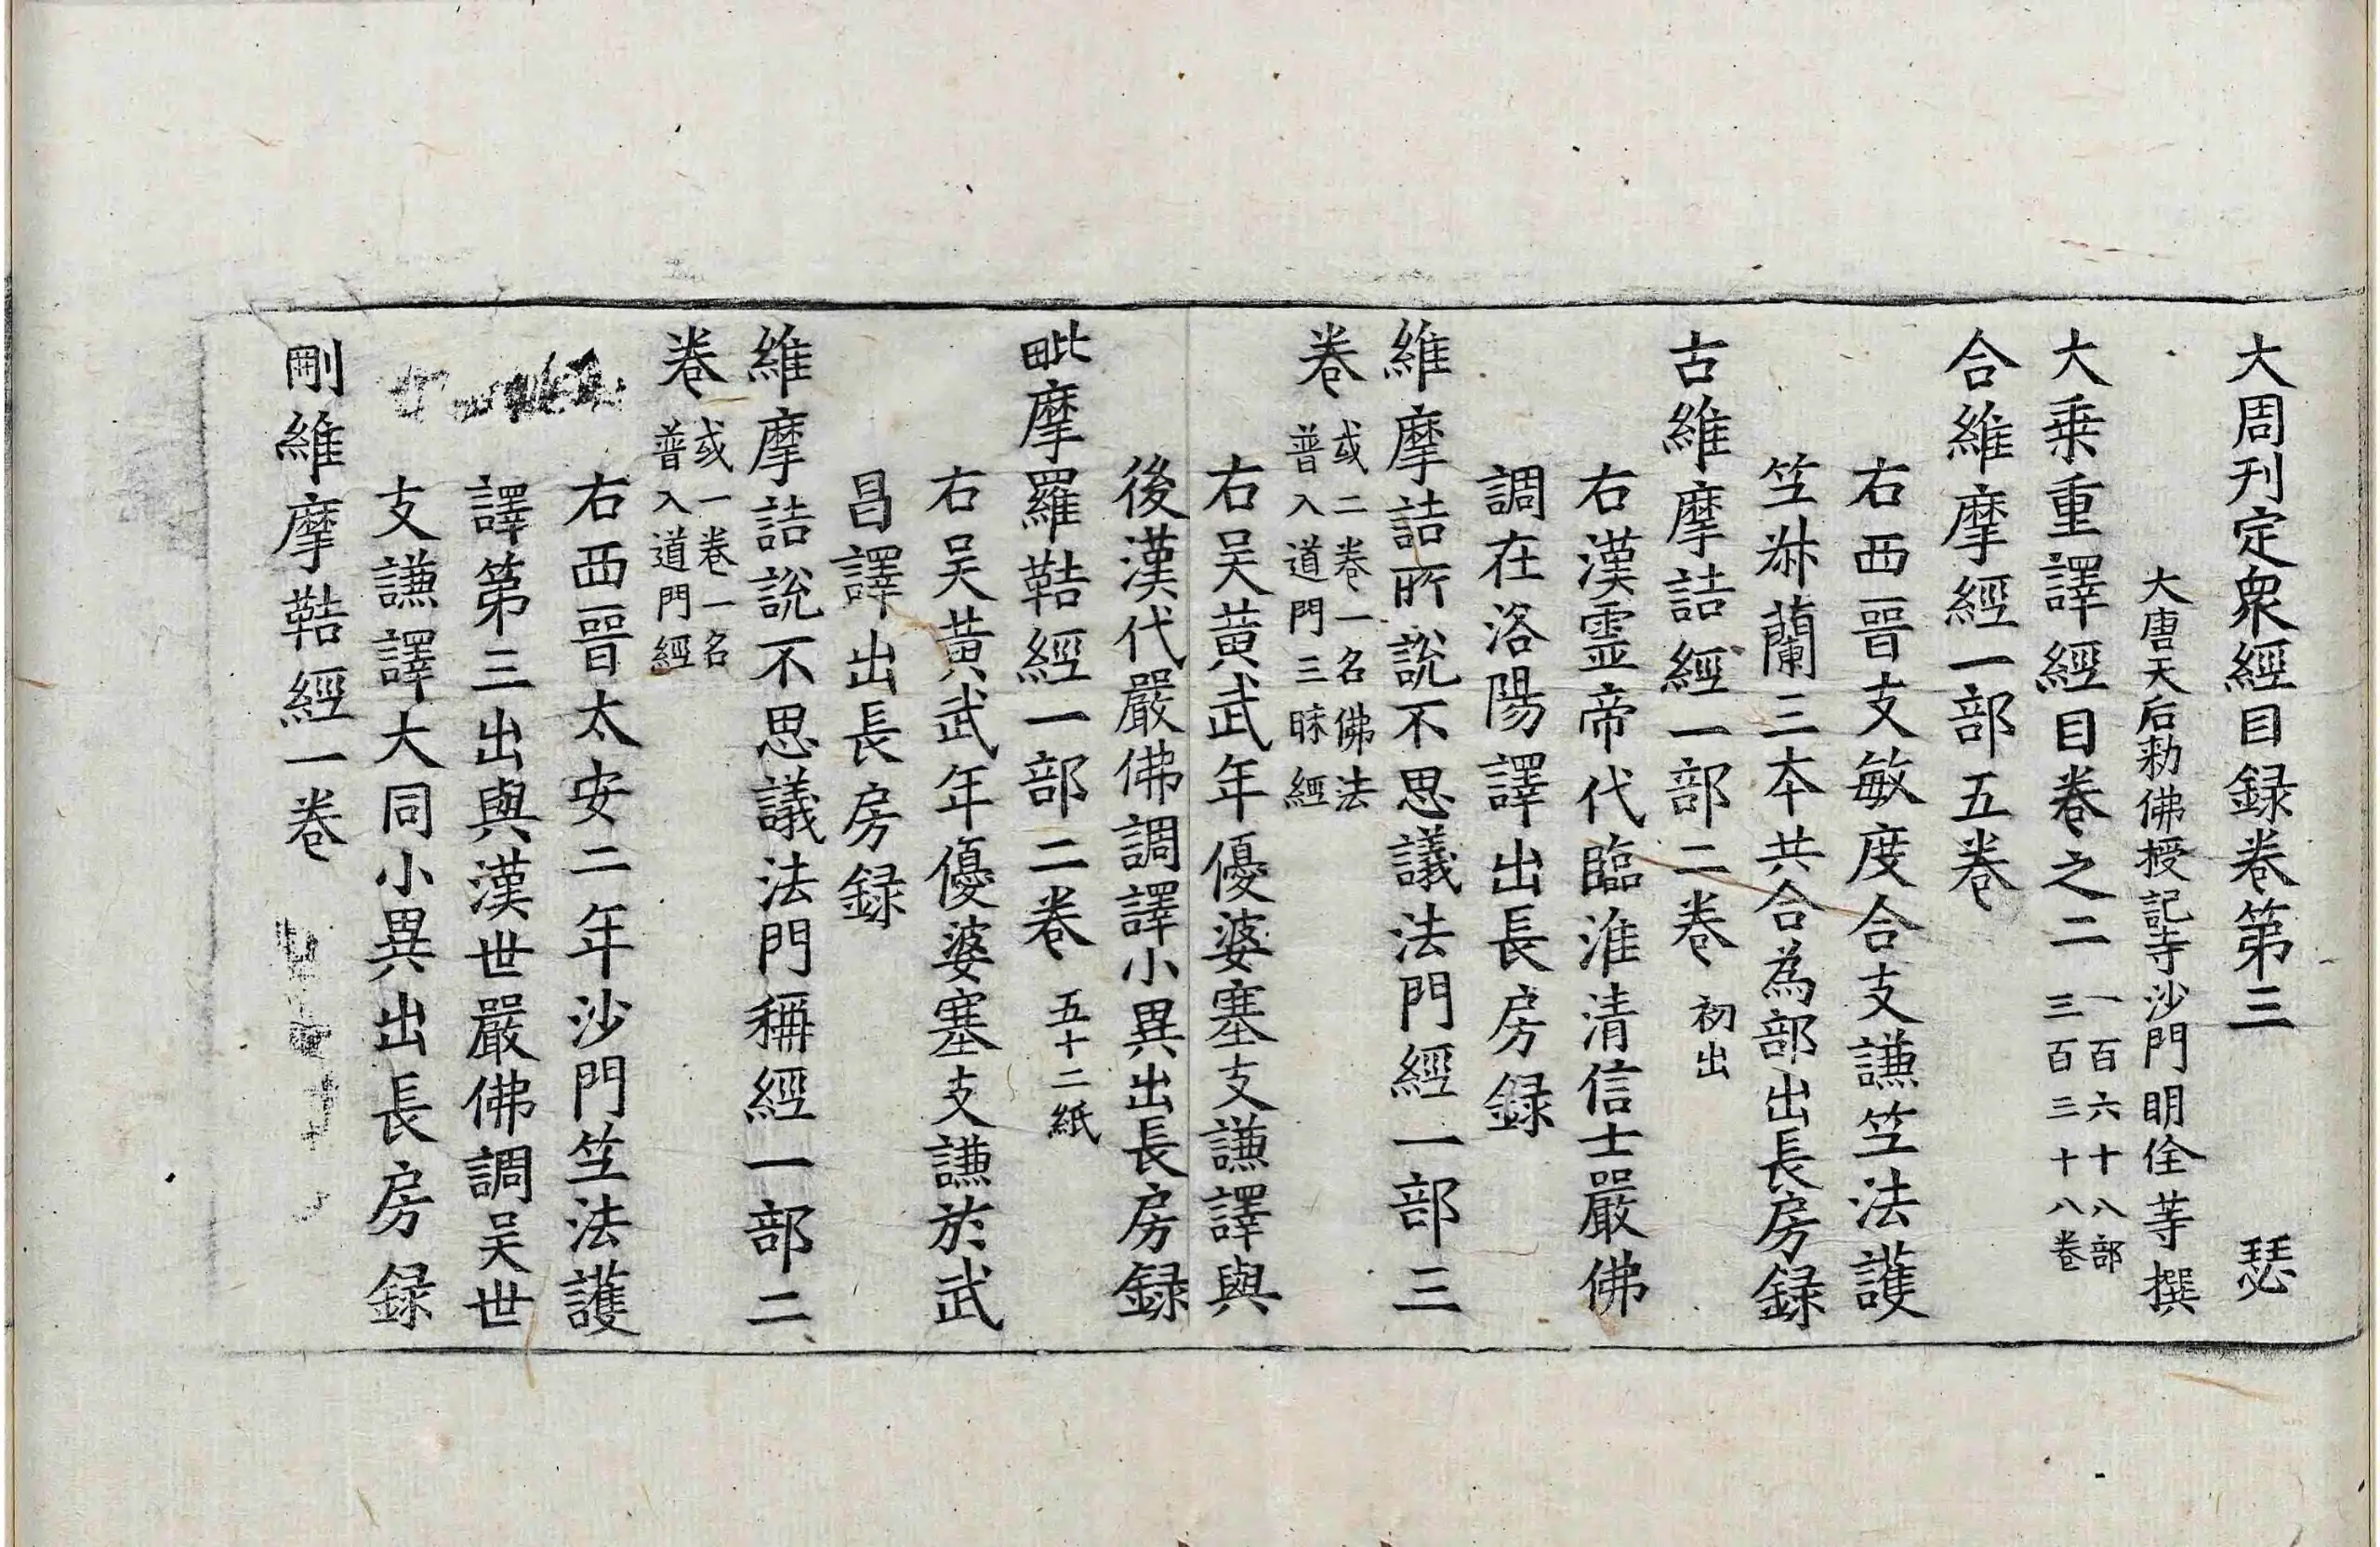 大周刊定衆經目録卷第三　瑟
大唐天后勑佛授記寺沙門明佺等撰
大乗重譯經目卷之二　一百六十八部
三百三十八卷
合維摩經一部五卷
右西晉支敏度合支謙笁法護
笁𣏌蘭三本共合為部出長房録
古維摩詰經一部二卷　初出
右漢霊帝代臨淮清信士嚴佛
調在洛陽譯出長房録
維摩詰所說不思議法門經一部三
卷　或二卷一名佛法
普入道門三昧經
右吴黄武年優婆塞支謙譯與
後漢代嚴佛調譯小異出長房録
毗摩羅鞊經一部二卷　五十二紙
右吴黄武年優婆塞支謙於武
昌譯出長房録
維摩詰說不思議法門稱經一部二
卷　或一卷一名
普入道門經
右西晉太安二年沙門笁法護
譯第三出與漢世嚴佛調吴世
支謙譯大同小異出長房録
刪維摩鞊經一卷